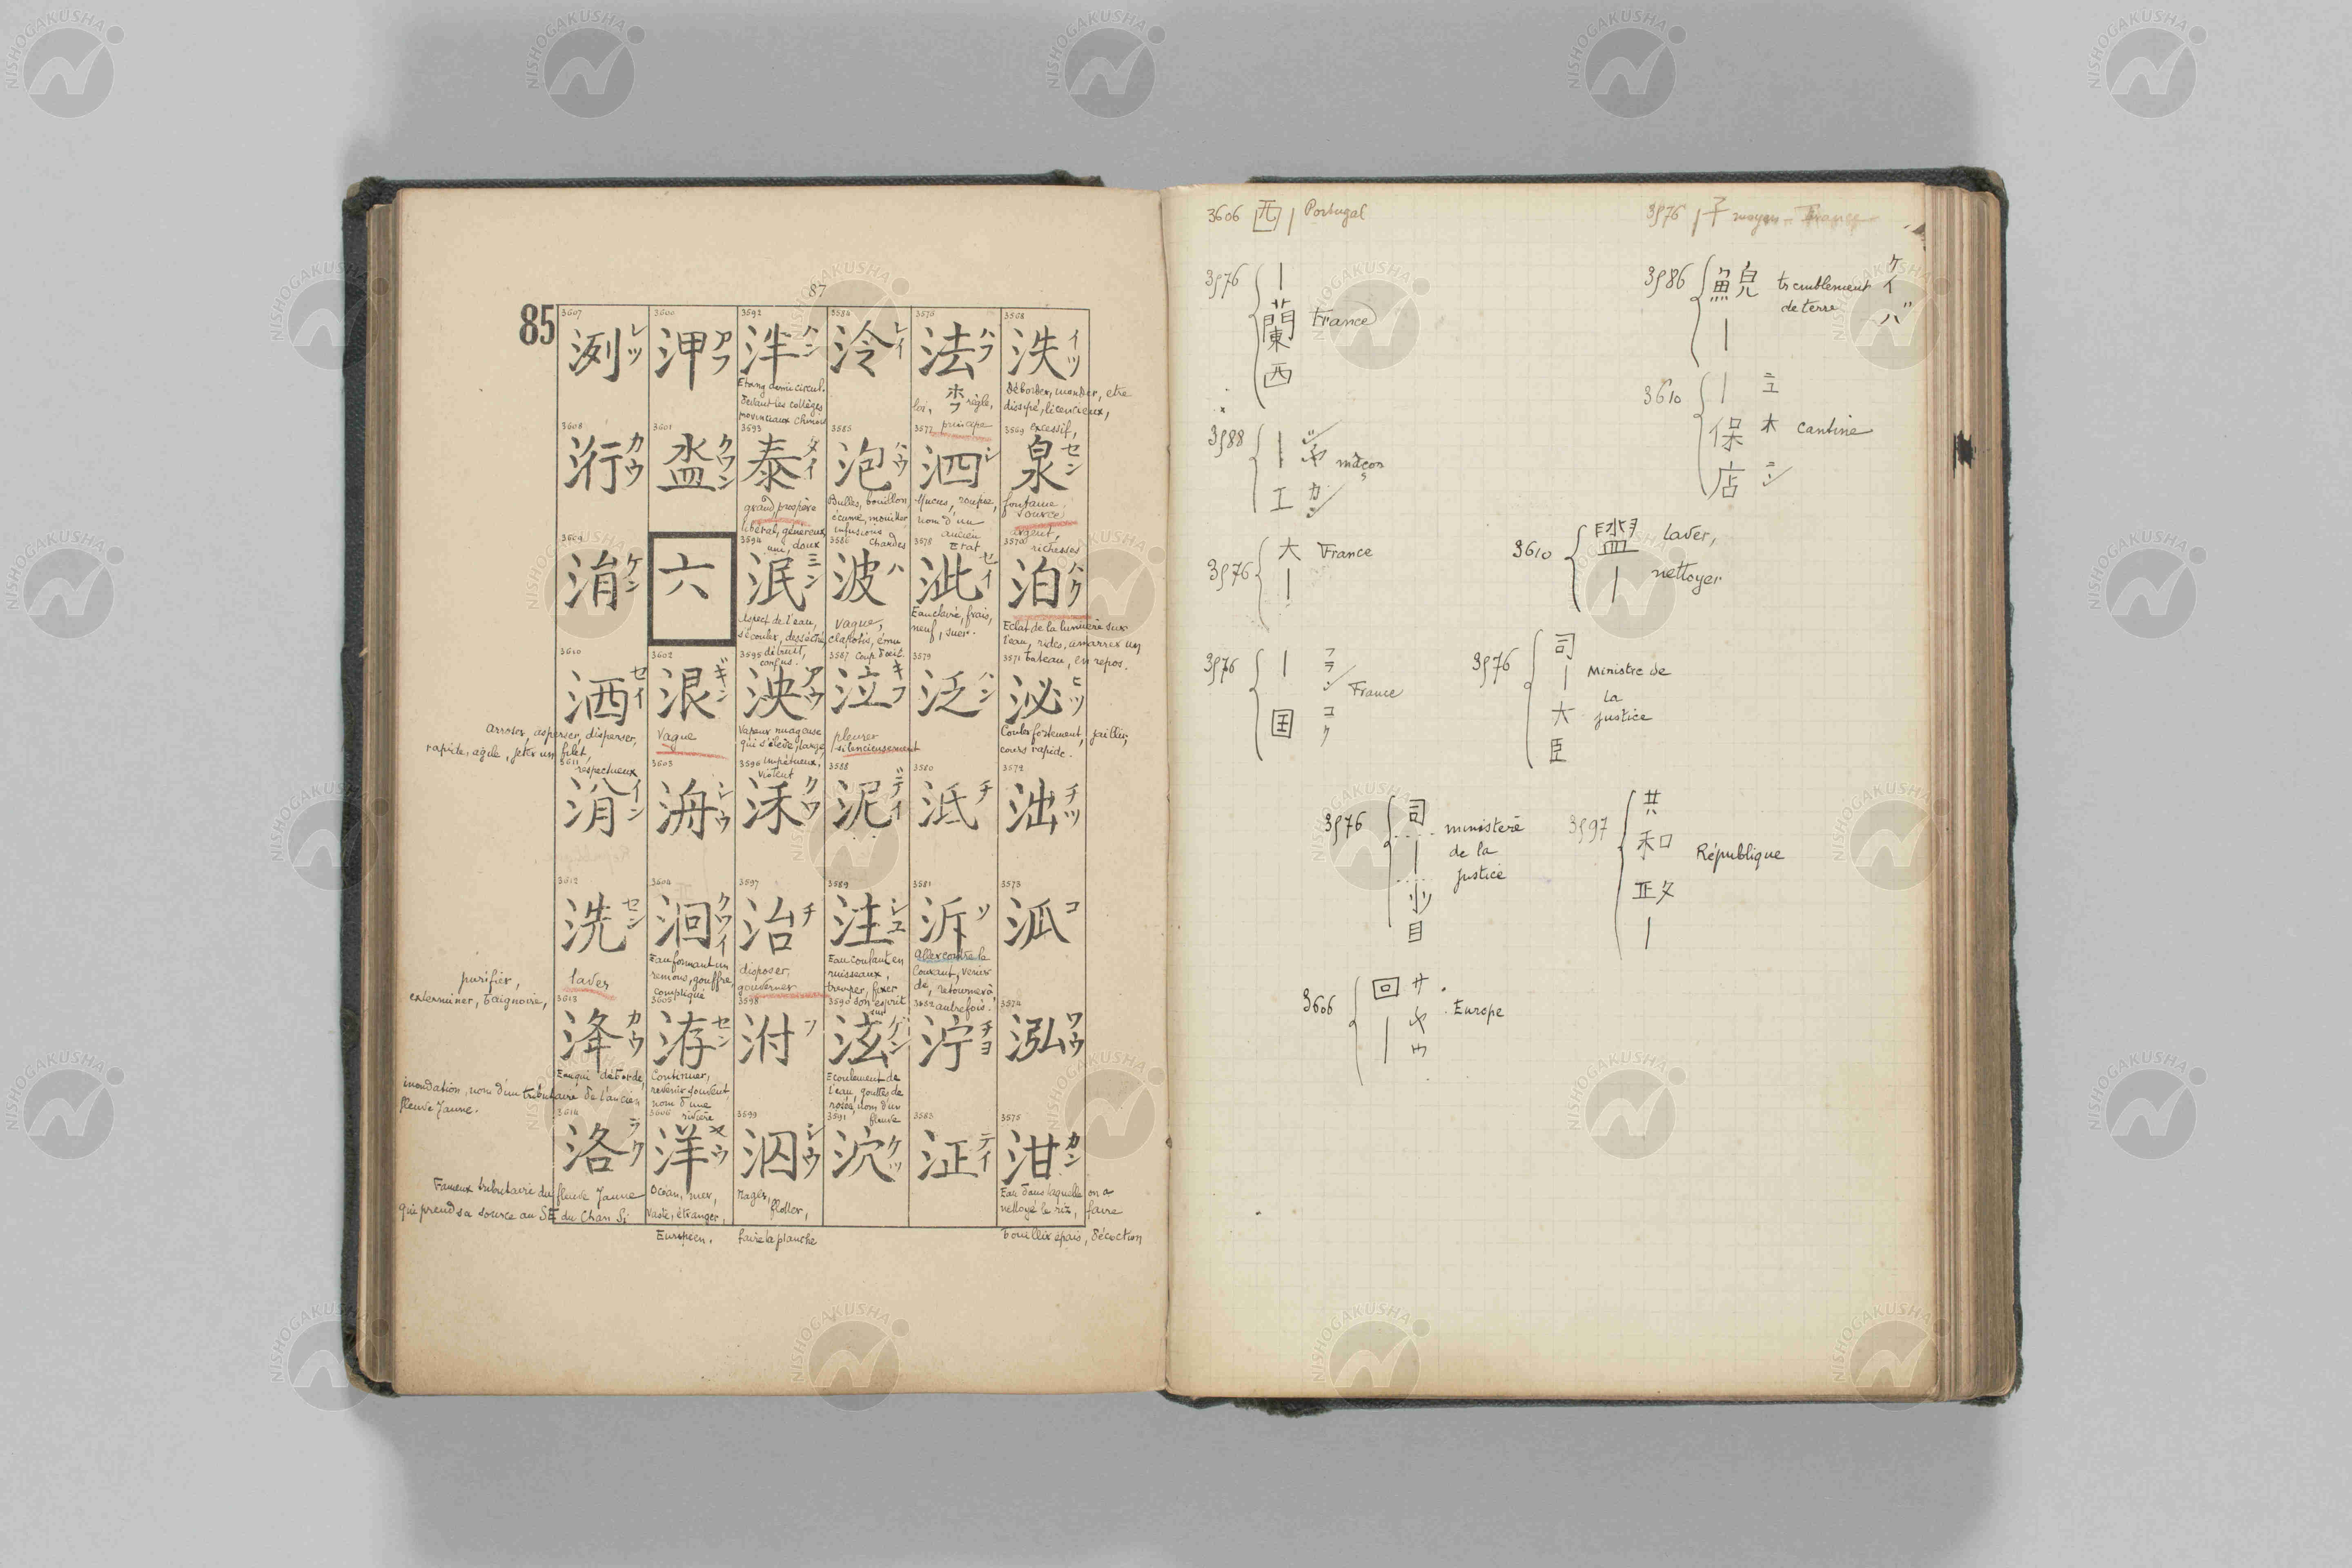 87
85
3568
泆
イツ
Déborder, inonder, etre
dissipé, licencieux,
excessif,
3569
泉
セン
fontaine
source
argent,
richesses
3570
泊
ハク
Eclat de la lumière sur
l'eau, rides, amarrer un
bateau, en repos.
3571
泌
ヒツ
Couler fortement, jaillir,
cours rapide.
3572
泏
チツ
3573
泒
コ
3574
泓
ワウ
3575
泔
カン
Eau dans laquelle on a
nettoyé le riz, faire
bouillir épais, décoction
3576
法
ハフ
loi, règle,
principe
3577
泗
シ
Mucus, roupie,
nom d'un
ancien
Etat
3578
泚
セイ
Eau claire, frais,
neuf, suer.
3579
泛
ハン
3580
泜
チ
3581
泝
ソ
Aller contre le
Courant, venir
de, retourner à,
autrefois.
3582
泞
チヨ
3583
泟
テイ
3584
泠
レイ
3585
泡
ハウ
Bulles, bouillon
écume, mouiller
infusions
chaudes
3586
波
ハ
Vague,
clapotis, ému
coup d'oeil.
3587
泣
キフ
pleurer
silencieusement
3588
泥
デイ
3589
注
シユ
Eau coulant en
ruisseaux,
tremper, fixer
son esprit
sur
3590
泫
ゲン
Ecoulement de
l'eau, gouttes de
rosée, nom d'un
fleuve
3591
泬
ケツ
3592
泮
ハン
Etang demi circul.
devant les collèges
provinciaux chinois
3593
泰
タイ
grand, prospère
libéral, généreux,
uni, doux
3594
泯
ミン
Aspect de l'eau,
s'écouler, desséché,
détruit,
confus.
3595
泱
アウ
Vapeur nuageuse
qui s'élève, large,
impétueux,
violent
3596
泳
クワ
3597
治
チ
disposer,
gouverner
3598
泭
フ
3599
泅
シウ
Nager,
flotter,
faire la planche
3600
泙
アフ
3601
盁
クワン
六
3602
泿
ギン
Vague
3603
洀
シウ
3604
洄
クワイ
Eau formant un
remous, gouffre,
compliqué
3605
洊
セン
Continuer,
revenir souvent,
nom d'une
rivière
3606
洋
ヤウ
Océan, mer,
vaste, étranger,
Européen.
3607
洌
レツ
3608
洐
カウ
3609
涓
ケン
3610
洒
セイ
arroser, asperser, disperser,
rapide, agile, jeter un filet,
respectueux
3611
イン
3612
洗
セン
laver
purifier,
exterminer, baignoire,
3613
洚
カウ
Eau qui déborde,
inondation, nom d'un tributaire de l'ancien
fleuve Jaune.
3614
洛
ラク
Fameux tributaire du fleuve Jaune
qui prend sa source au SE du Chan Si
3606 西 | Portugal
3576 | 子 moyen - France
3576 | 蘭西 France
3586 鯢 | tremblement de terre ケイ バ
3610 | 保店 cantine
3588 | 工 maçon シヤ カン
3576 大 | France
3610 盥 | laver,
nettoyer
3576 | 国 フランコク France
3576 司 | 大臣 Ministre de
la
justice
3576 司 | 少目 ministère
de la
justice
3597 共和政 | République
3606 回 | サヤウ Europe